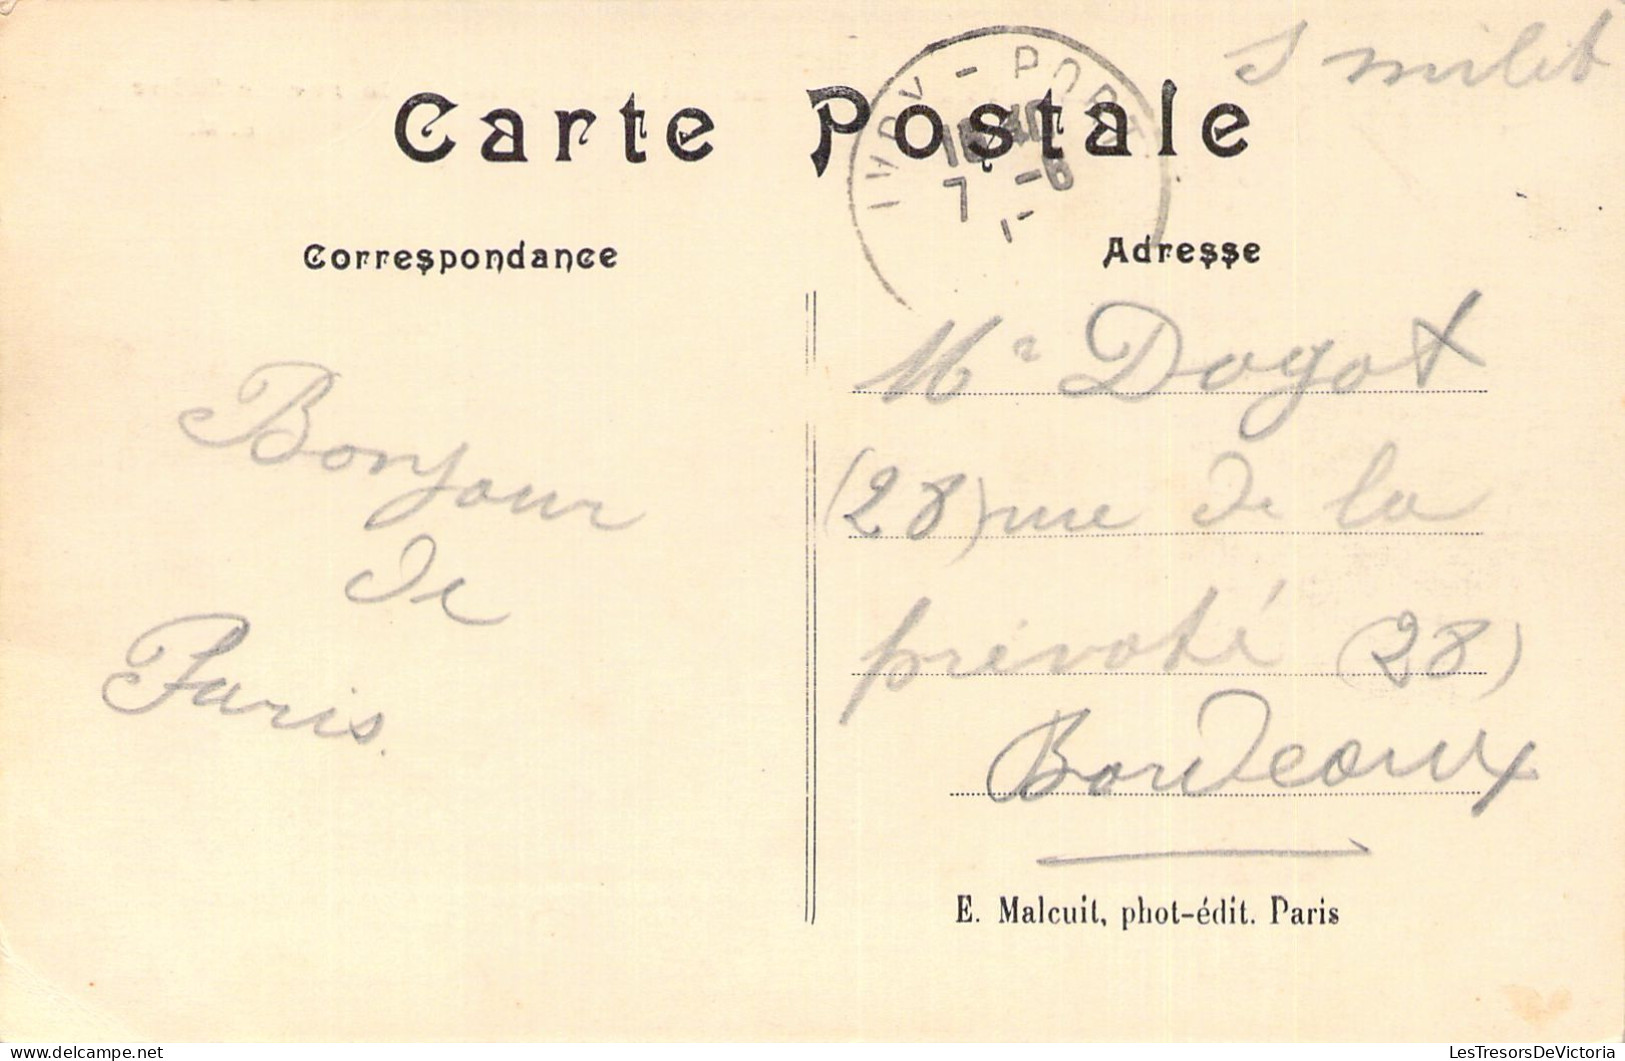 S milit
Carte Postale
IVRY - PORT
7 -6
Correspondance
Adresse
Bonjour
de
Paris.
Mr Dogot
(28) rue de la
prévoté (28)
Bordeaux
E. Malcuit, phot-édit. Paris
LesTresorsDeVictoria